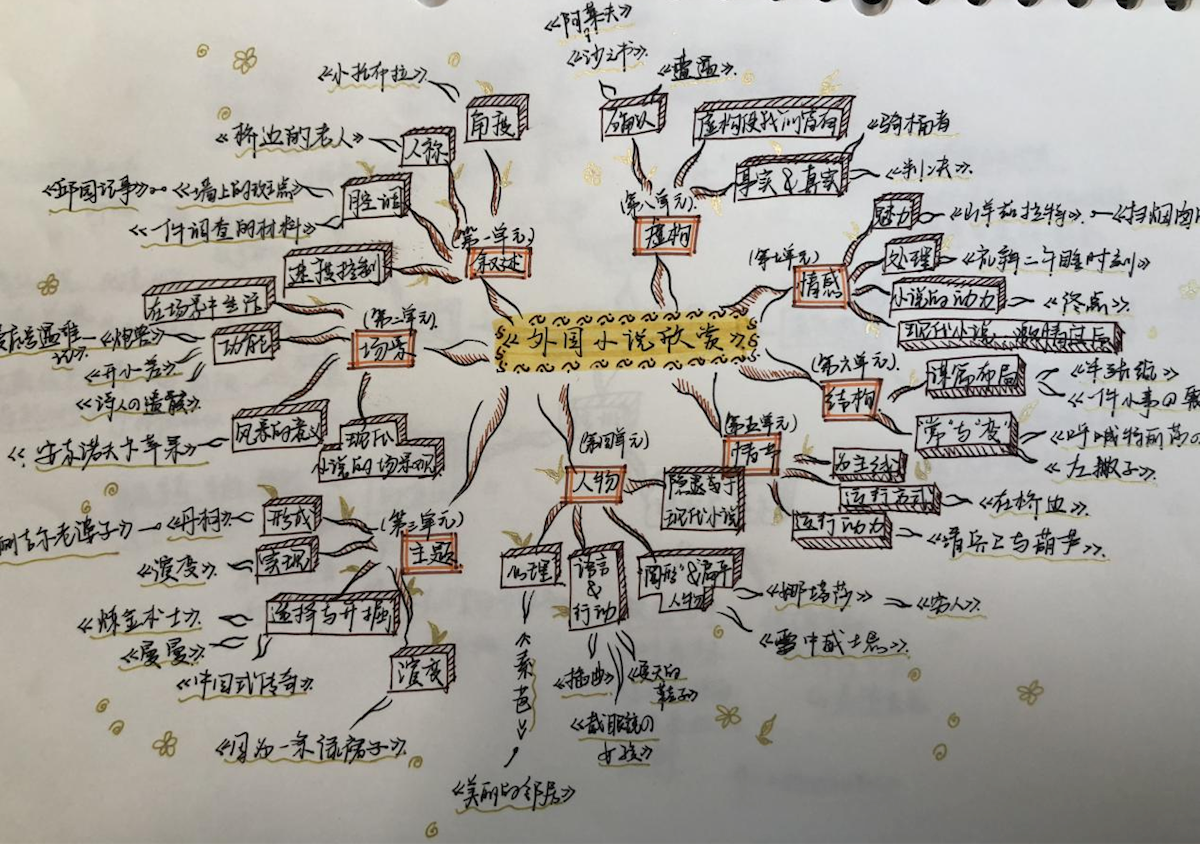 《外国小说欣赏》
(第一单元)
叙述
角度
《小托布拉》
人称
《桥边的老人》
腔调
《墙上的斑点》
《邱园记事》
《一件调查的材料》
速度控制
(第二单元)
场景
在场景中生活
功能
《炮兽》
《开小差》
《诗人の遗骸》
风景的意义
《安东诺夫卡苹果》
现代
小说的场景观
(第三单元)
主题
形成
《丹柯》
实现
《演变》
选择与开掘
《炼金术士》
《屡屡》
《中国式传奇》
演变
《因为一条流苏子》
(第四单元)
人物
隐遁于
现代小说
心理
《素芭》
《美丽的邻居》
语言
&
行动
《插曲》
《戴眼镜の
女孩》
"圆形"&"扁平"
人物
《娜塔莎》
《穷人》
《雪中
(第五单元)
情节
运行方式
《在桥边》
运行动力
《清兵卫与葫芦》
(第六单元)
结构
谋篇布局
《牛虻
《一件小事の
"常"与"变"
《呼喊
《左撇子》
(第七单元)
情感
魅力
《山羊兹拉特》
《扫烟囱
处理
《礼拜二午睡时刻》
小说的动力
《终点》
现代小说:激情
(第八单元)
虚构
确认
《沙之书》
《阿莱夫》
虚构使我们富有
事实&真实
《骑桶者
《判决》